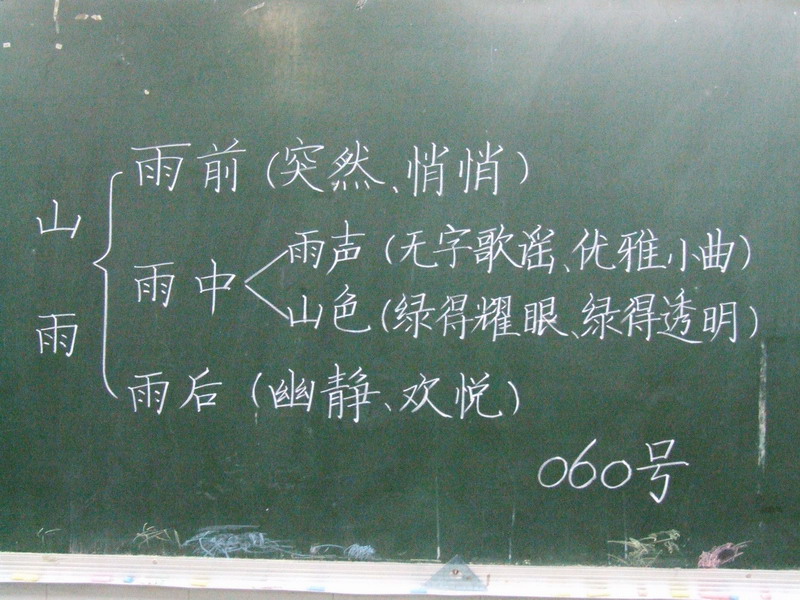 山雨
雨前(突然、悄悄)
雨中
雨声(无字歌谣、优雅小曲)
山色(绿得耀眼、绿得透明)
雨后(幽静、欢悦)
060号